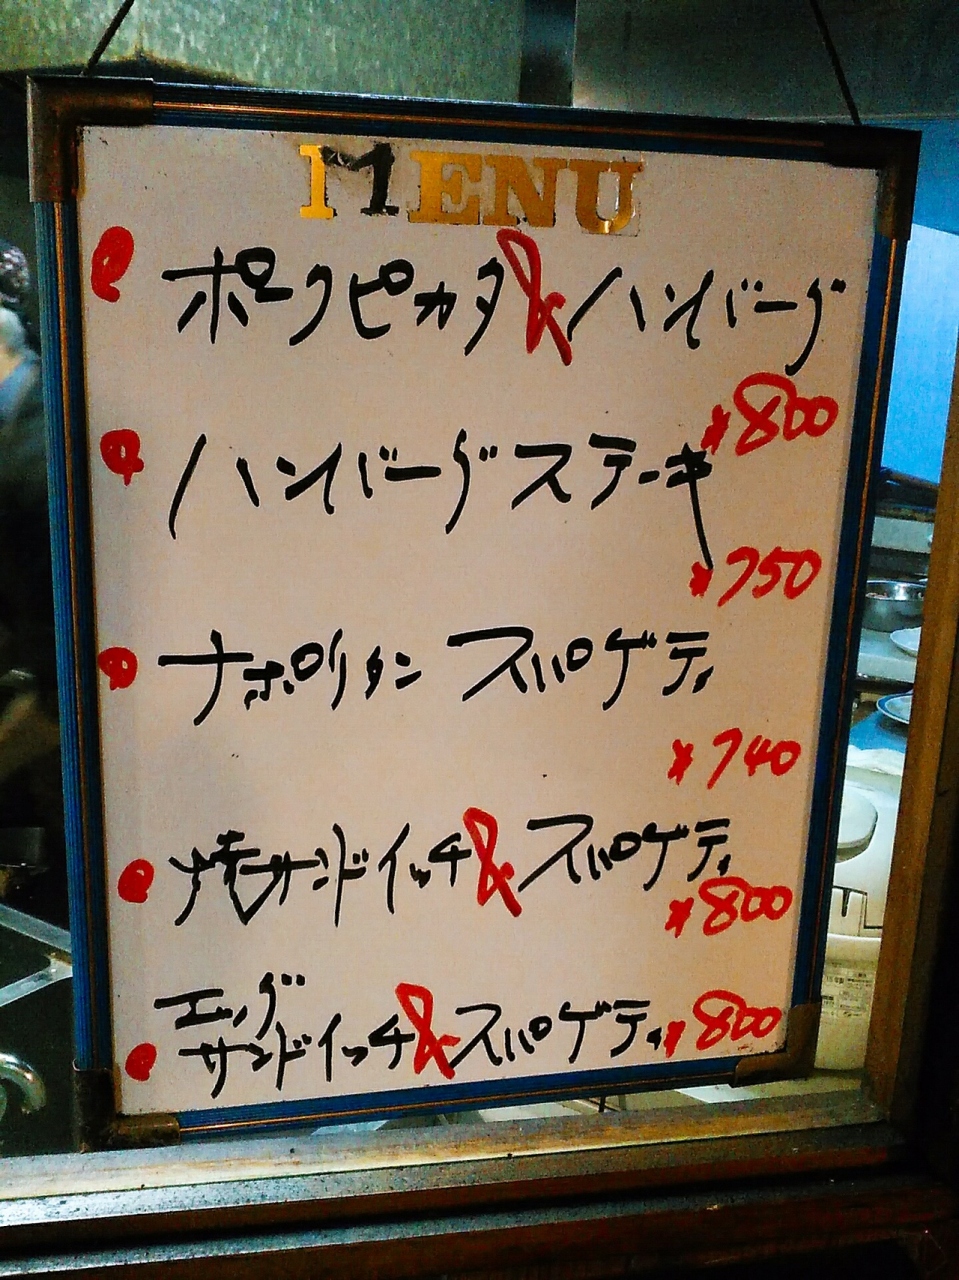 MENU
ポークピカタ&ハンバーグ
¥800
ハンバーグステーキ
¥750
ナポリタン スパゲティ
¥740
サンドイッチ&スパゲティ
¥800
エッグ
サンドイッチ&スパゲティ ¥800